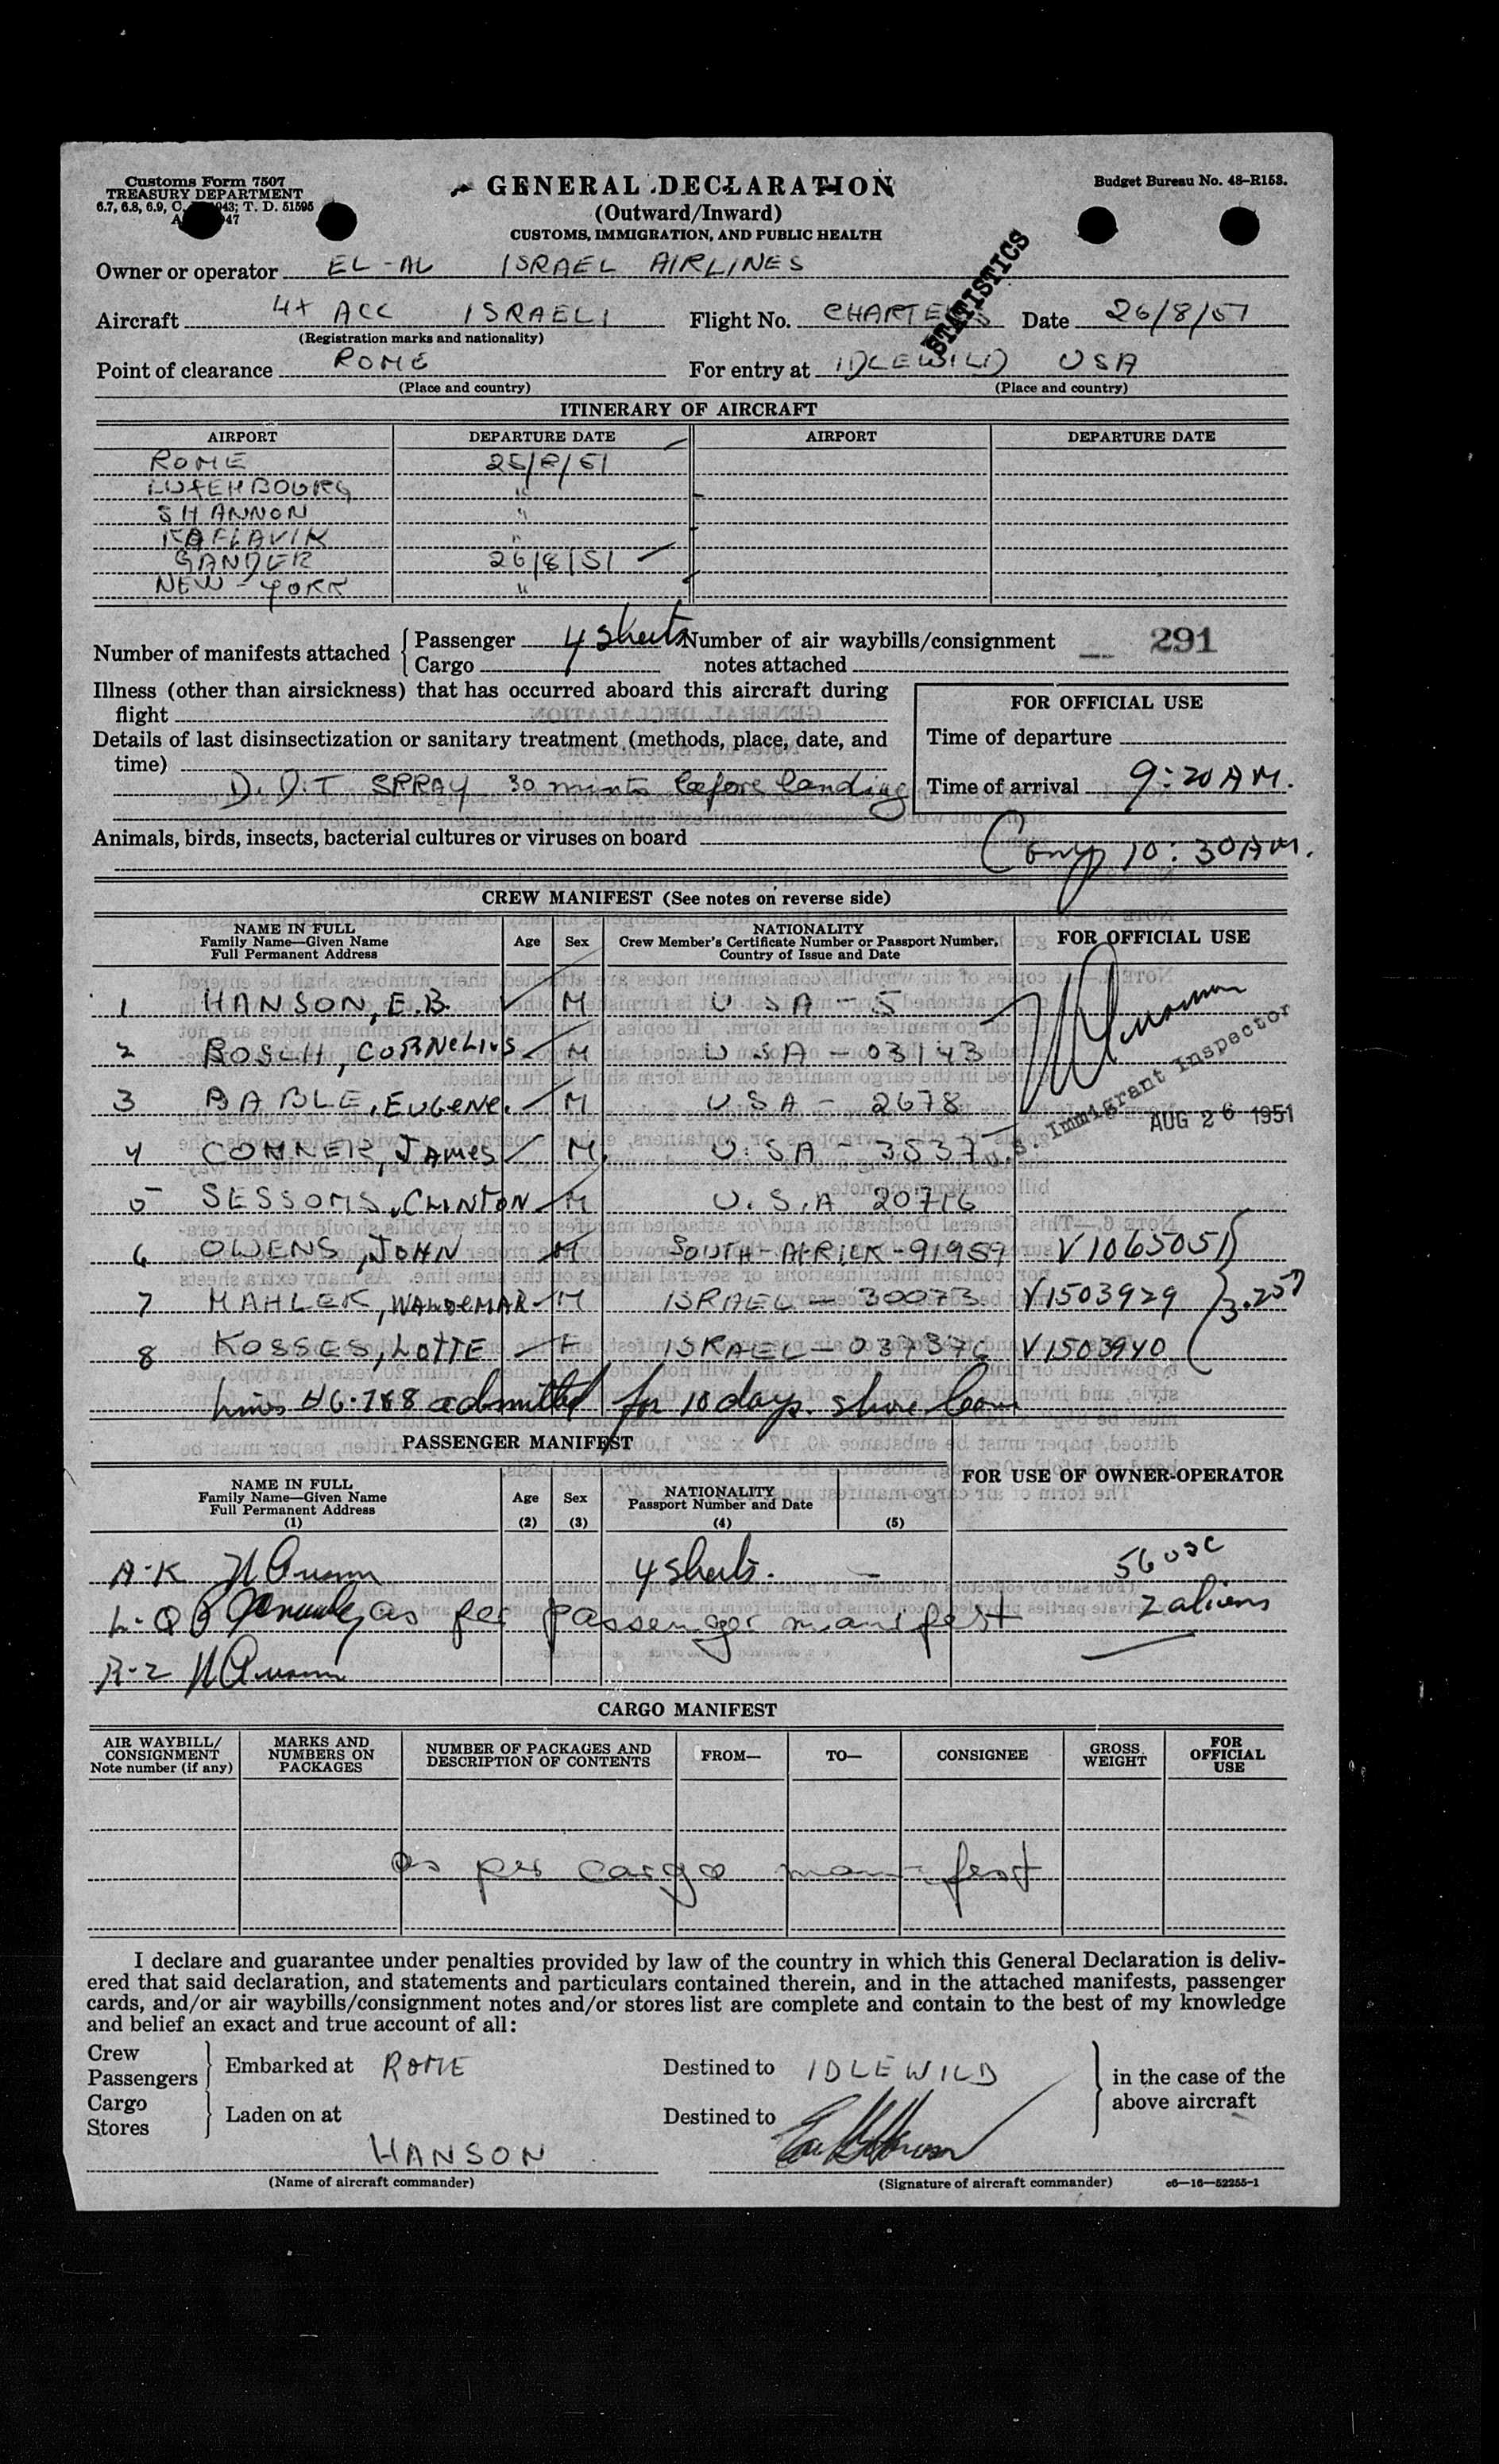 Customs Form 7507
TREASURY DEPARTMENT
6.7, 6.8, 6.9, C. 1943; T. D. 51595
GENERAL DECLARATION
(Outward/Inward)
CUSTOMS, IMMIGRATION, AND PUBLIC HEALTH
Budget Bureau No. 48-R153.
STATISTICS
Owner or operator EL-AL ISRAEL AIRLINES
Aircraft 4X ACC ISRAELI Flight No. CHARTER Date 26/8/51
(Registration marks and nationality)
Point of clearance ROME For entry at IDLEWILD USA
(Place and country) (Place and country)
ITINERARY OF AIRCRAFT
AIRPORT DEPARTURE DATE AIRPORT DEPARTURE DATE
ROME 25/8/51
LUXEMBOURG "
SHANNON "
KAFLAVIK "
GANDER 26/8/51
NEW-YORK "
Number of manifests attached Passenger 4 sheets Number of air waybills/consignment 291
Cargo notes attached
Illness (other than airsickness) that has occurred aboard this aircraft during
flight
FOR OFFICIAL USE
Details of last disinsectization or sanitary treatment (methods, place, date, and
time)
Time of departure
D.D.T SPRAY 30 mints before landing
Time of arrival 9:20 AM.
Animals, birds, insects, bacterial cultures or viruses on board
10:30 AM.
CREW MANIFEST (See notes on reverse side)
NAME IN FULL
Family Name—Given Name
Full Permanent Address
Age Sex
NATIONALITY
Crew Member's Certificate Number or Passport Number,
Country of Issue and Date
FOR OFFICIAL USE
1 HANSON, E.B. M U S A - 5
2 BOSCH, CORNELIUS M U S A - 03143
3 BABLE, EUGENE. M U S A - 2678
U.S. Immigrant Inspector
AUG 26 1951
4 CONNER, JAMES M. U.S A - 3537
5 SESSOMS, CLINTON M U.S.A 20716
6 OWENS, JOHN M SOUTH-AFRICK-91959 V1065051
7 MAHLEK, WALDEMAR M ISRAEL - 30073 V1503929 3.257
8 KOSSES, LOTTE F ISRAEL - 037376 V1503940
Lines #6.7&8 admitted for 10 days. shore leave
PASSENGER MANIFEST
NAME IN FULL
Family Name—Given Name
Full Permanent Address
(1)
Age
(2)
Sex
(3)
NATIONALITY
Passport Number and Date
(4) (5)
FOR USE OF OWNER-OPERATOR
A-K 4 sheets. 56 usc
L-Q as per passenger manifest 2 aliens
R-Z
CARGO MANIFEST
AIR WAYBILL/
CONSIGNMENT
Note number (if any)
MARKS AND
NUMBERS ON
PACKAGES
NUMBER OF PACKAGES AND
DESCRIPTION OF CONTENTS
FROM— TO— CONSIGNEE
GROSS
WEIGHT
FOR
OFFICIAL
USE
as per cargo manifest
I declare and guarantee under penalties provided by law of the country in which this General Declaration is deliv-
ered that said declaration, and statements and particulars contained therein, and in the attached manifests, passenger
cards, and/or air waybills/consignment notes and/or stores list are complete and contain to the best of my knowledge
and belief an exact and true account of all:
Crew
Passengers
Embarked at ROME Destined to IDLEWILD
in the case of the
above aircraft
Cargo
Stores
Laden on at Destined to
HANSON
(Name of aircraft commander) (Signature of aircraft commander) c6—16—52255-1